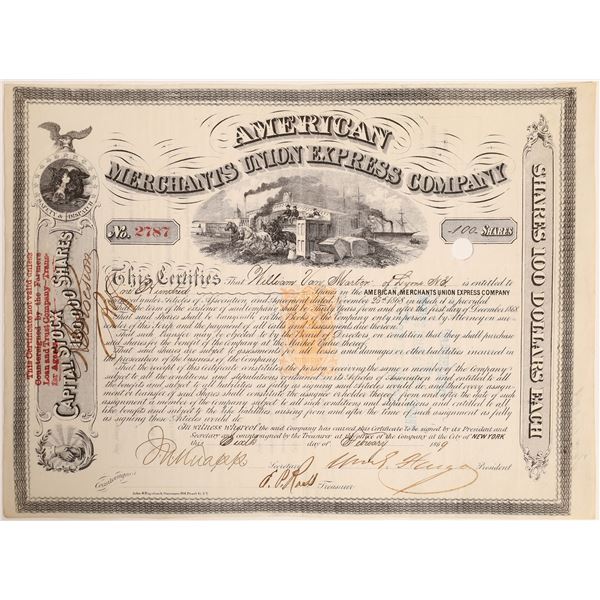 AMERICAN
MERCHANTS UNION EXPRESS COMPANY
No. 2787
100 SHARES
SAFETY & DISPATCH
This Certifies That William Van Marter of Lyons N.Y. is entitled to
One Hundred Shares in the AMERICAN MERCHANTS UNION EXPRESS COMPANY
under Articles of Association and Agreement dated November 25th 1868 in which it is provided
That the term of the existence of said company shall be thirty Years from and after the first day of December 1868.
That said shares shall be transferable on the Books of the Company only in person or by Attorney on sur-
render of this Scrip and the payment of all calls or Assessments due thereon.
That such transfer may be objected to by the Board of Directors on condition that they shall purchase
the shares for the benefit of the Company at the Market Value thereof.
That said shares are subject to assessments for all losses and damages or other liabilities incurred in
the prosecution of the business of the Company.
That the receipt of this certificate constitutes the person receiving the same a member of the Company
subject to all the conditions and stipulations contained in its Articles of Association and entitled to all the
benefits and subject to all its liabilities as fully as if he had signed said Articles, and that every assign-
ment or transfer of said Shares shall constitute the assignee a holder thereof from and after the date of such
assignment a member of the Company subject to all such conditions and stipulations and entitled to all the
like benefits and subject to the like liabilities arising from and after the time of such assignment as fully
as signing these Articles would do.
In witness whereof the said Company has caused this Certificate to be signed by its President and
Secretary and countersigned by the Treasurer at the office of the Company at the City of NEW YORK
this Sixth day of February 1869
Secretary
President
Treasurer
Countersigned
John A Hegeman
N.Y.
SHARES 100 DOLLARS EACH
CAPITAL STOCK 180,000 SHARES
This Certificate not valid unless
Countersigned by the Farmers
Loan and Trust Company Trans-
fer Agents